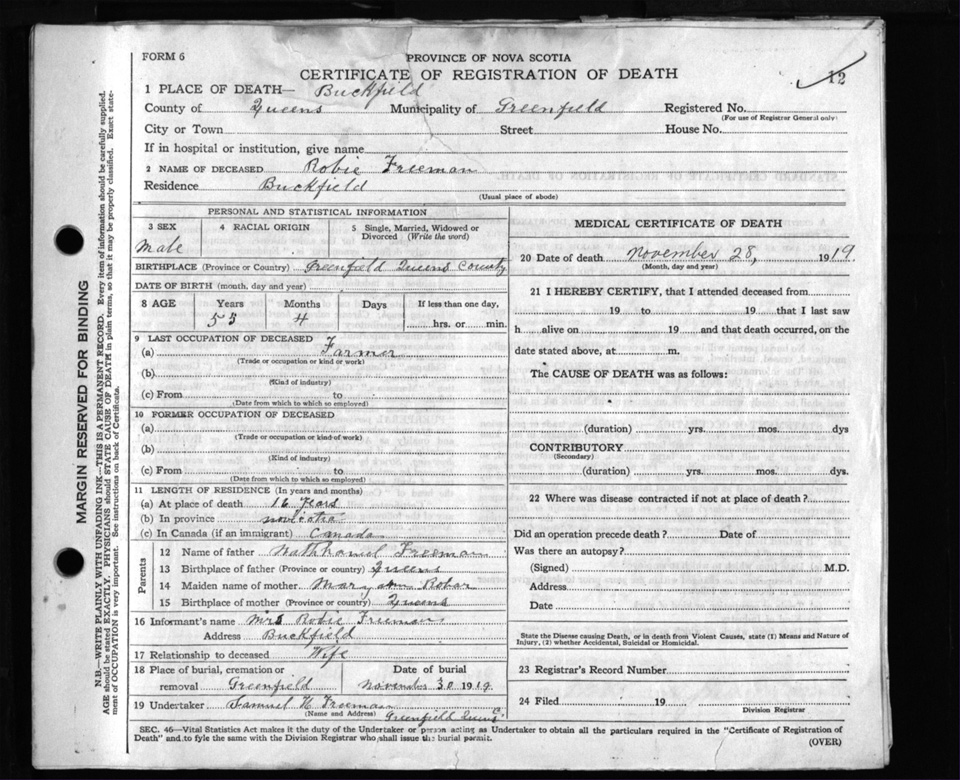 FORM 6
PROVINCE OF NOVA SCOTIA
CERTIFICATE OF REGISTRATION OF DEATH
12
1 PLACE OF DEATH— Buckfield
County of Queens Municipality of Greenfield Registered No.
(For use of Registrar General only)
City or Town Street House No.
If in hospital or institution, give name
2 NAME OF DECEASED Robie Freeman
Residence Buckfield
(Usual place of abode)
PERSONAL AND STATISTICAL INFORMATION
3 SEX 4 RACIAL ORIGIN 5 Single, Married, Widowed or Divorced (Write the word)
Male
BIRTHPLACE (Province or Country) Greenfield Queens County
DATE OF BIRTH (month, day and year)
8 AGE Years Months Days If less than one day,
55 4 hrs. or min.
9 LAST OCCUPATION OF DECEASED
(a) Farmer
(Trade or occupation or kind or work)
(b)
(Kind of industry)
(c) From to
(Date from which to which so employed)
10 FORMER OCCUPATION OF DECEASED
(a)
(Trade or occupation or kind of work)
(b)
(Kind of industry)
(c) From to
(Date from which to which so employed)
11 LENGTH OF RESIDENCE (In years and months)
(a) At place of death 16 Years
(b) In province
(c) In Canada (if an immigrant) Canada
Parents
12 Name of father Nathhaniel Freeman
13 Birthplace of father (Province or country) Queens
14 Maiden name of mother Mary ann Robar
15 Birthplace of mother (Province or country) Queens
16 Informant's name Mrs Robie Freeman
Address Buckfield
17 Relationship to deceased Wife
18 Place of burial, cremation or Date of burial
removal Greenfield November 30 1919
19 Undertaker Samuel H Freeman
(Name and Address) Greenfield Queens C
MEDICAL CERTIFICATE OF DEATH
20 Date of death November 28, 1919
(Month, day and year)
21 I HEREBY CERTIFY, that I attended deceased from
19 to 19 that I last saw
h alive on 19 and that death occurred, on the
date stated above, at m.
The CAUSE OF DEATH was as follows:
(duration) yrs. mos. dys
CONTRIBUTORY
(Secondary)
(duration) yrs. mos. dys.
22 Where was disease contracted if not at place of death?
Did an operation precede death? Date of
Was there an autopsy?
(Signed) M.D.
Address
Date
State the Disease causing Death, or in death from Violent Causes, state (1) Means and Nature of
Injury, (2) whether Accidental, Suicidal or Homicidal.
23 Registrar's Record Number
24 Filed 19
Division Registrar
SEC. 46—Vital Statistics Act makes it the duty of the Undertaker or person acting as Undertaker to obtain all the particulars required in the "Certificate of Registration of
Death" and to fyle the same with the Division Registrar who shall issue the burial permit.
(OVER)
MARGIN RESERVED FOR BINDING
N.B.—WRITE PLAINLY WITH UNFADING INK—THIS IS A PERMANENT RECORD. Every item of information should be carefully supplied.
AGE should be stated EXACTLY. PHYSICIANS should STATE CAUSE OF DEATH in plain terms, so that it may be properly classified. Exact state-
ment of OCCUPATION is very important. See instructions on back of Certificate.